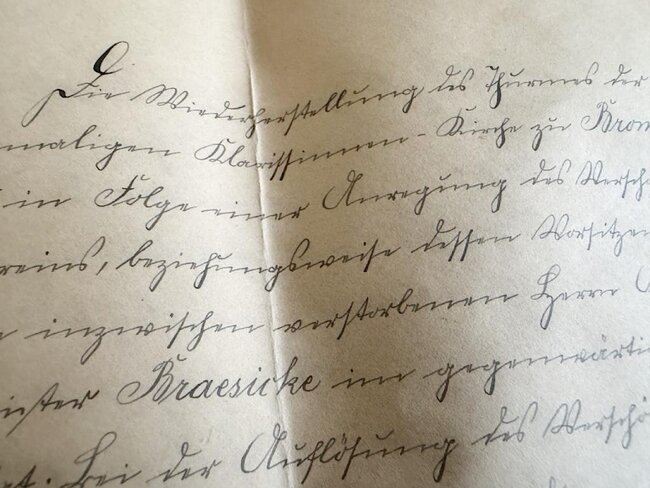 Die Wiederherstellung des Thurmes der
maligen Klarissinnen-Kirche zu Brom
in Folge einer Anregung des Versch
reins, beziehungsweise dessen Vorsitzen
e inzwischen verstorbenen Herrn
ister Braesicke im gegenwärti
et. Bei der Auflösung des Verschö